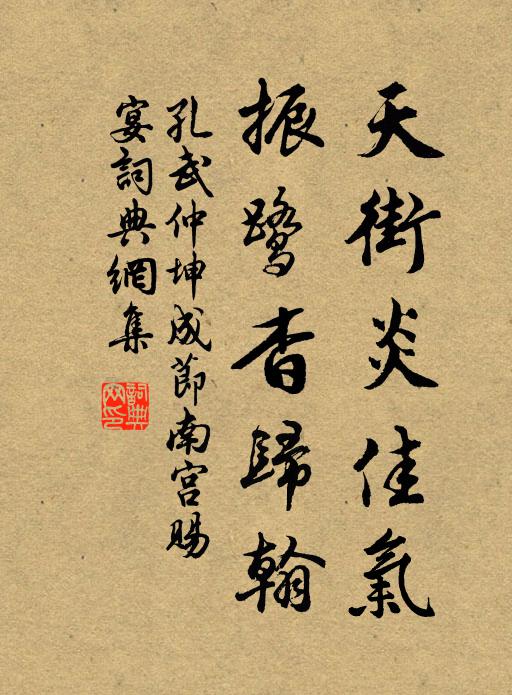 天街炎佳氣
振鷺杳歸翰
孔武仲坤成節南宮賜
宴詞典網集
詞典網印